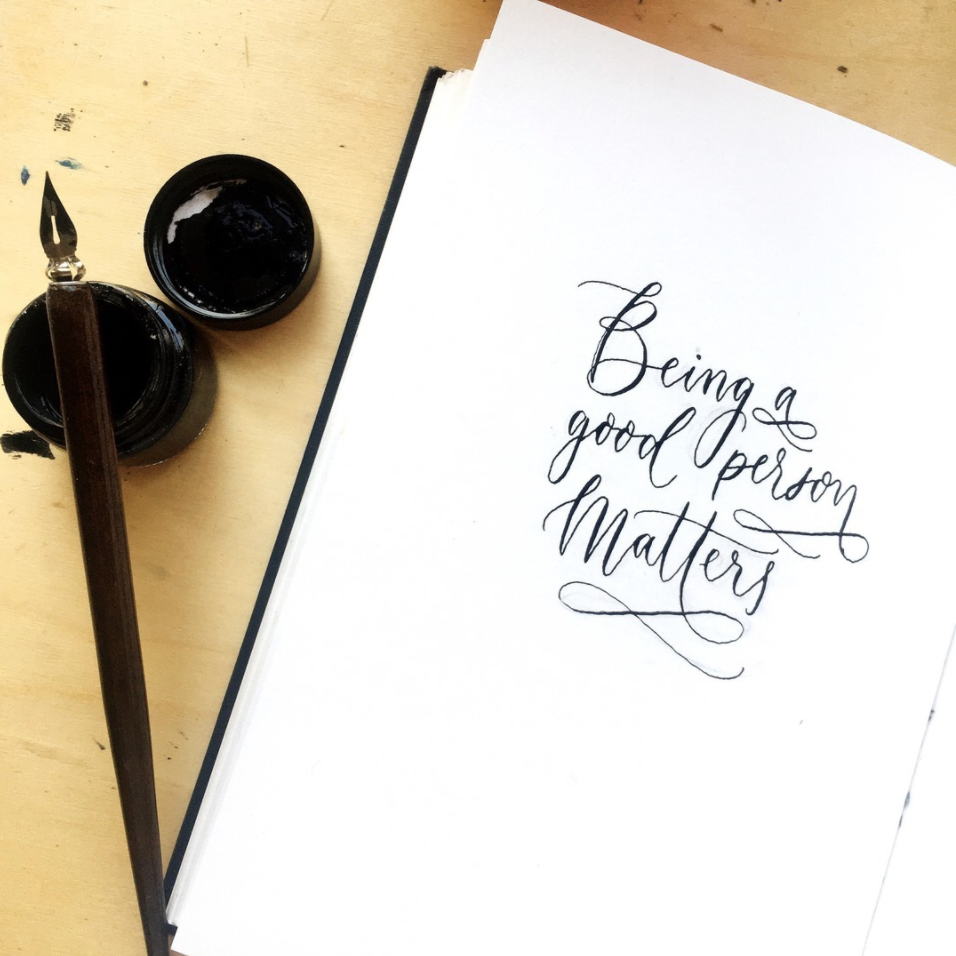 Being a
good person
Matters